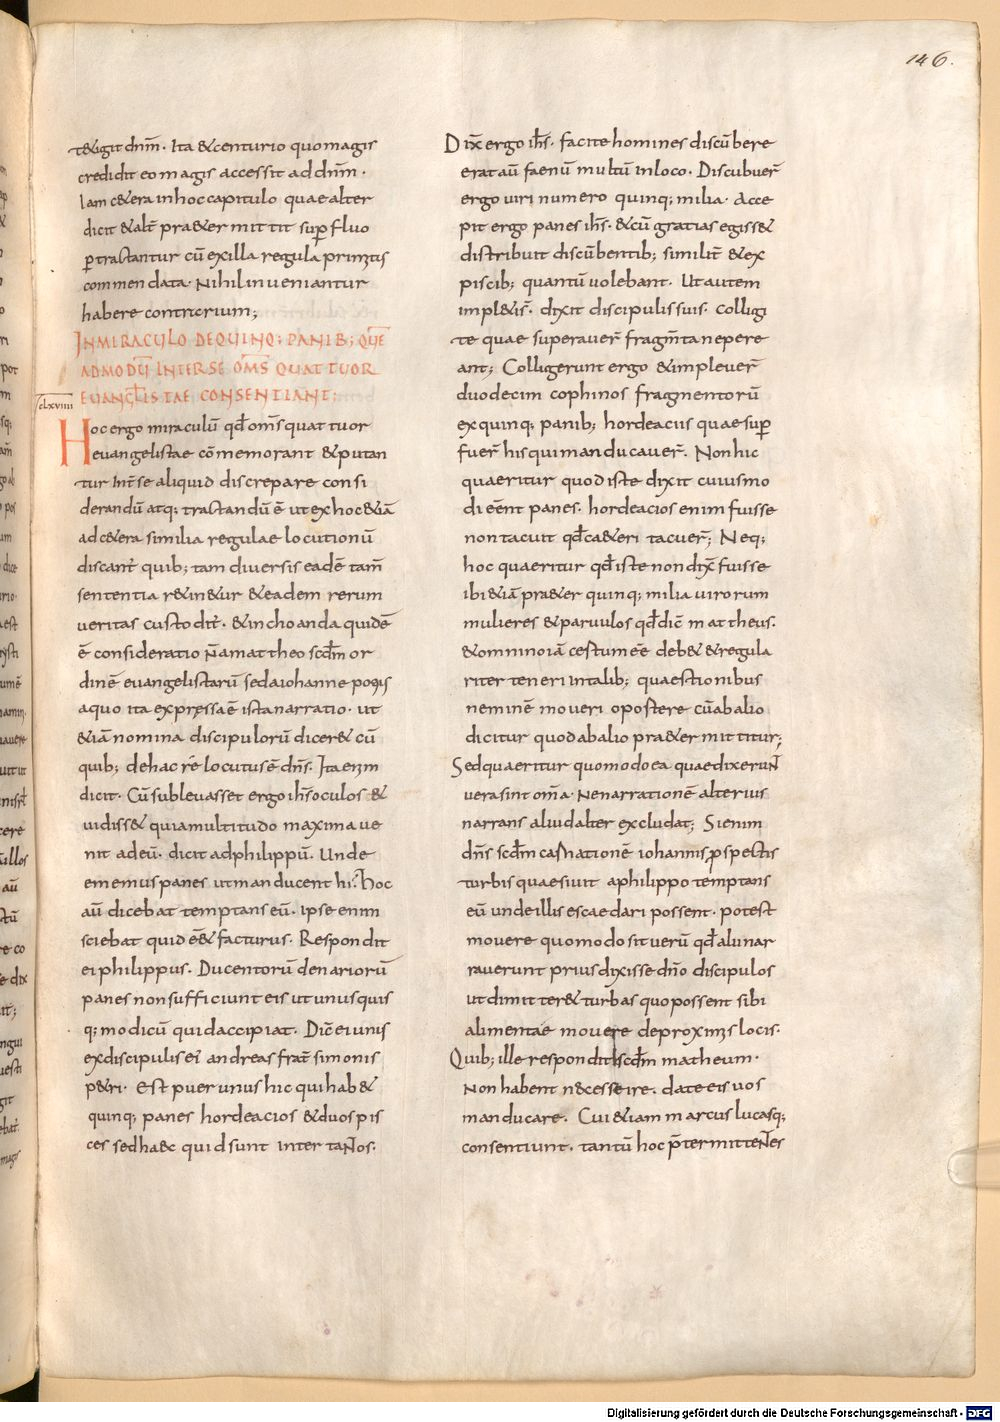 146.
t&igit dnm̄. Ita & centurio quo magis
credidit eo magis accessit ad dnm̄.
Iam c&era in hoc capitulo quae alter
dicit & alt̄ pra&er mittit sup̄fluo
p̄tractantur cū ex illa regula primitus
commendata. Nihil inveniantur
habere contrarium;
IN MIRACULO DE QUINQ; PANIB; QUĒ
ADMODŪ INTER SE OM̄S QUATTUOR
EUANGL̄ISTAE CONSENTIANT;
clxviiii
Hoc ergo miraculū qd̄ om̄s quattuor
evangelistae cōmemorant & putan
tur int̄ se aliquid discrepare consi
derandū atq; tractandū ē ut ex hoc &iā
ad c&era similia regulae locutionū
discant̄ quib; tam diversis eadē tam̄
sententia r&in&ur & eadem rerum
veritas custodit̄. & inchoanda quidē
ē consideratio n̄ a mattheo scd̄m or
dinē evangelistarū sed a iohanne potius
a quo ita expressa ē ista narratio. ut
&iā nomina discipulorū dicer& cū
quib; de hac rē locutus ē dn̄s. Ita enim
dicit. Cū sublevasset ergo ih̄s oculos &
vidiss& quia multitudo maxima ve
nit ad eū. dicit ad philippū. Unde
ememus panes ut manducent hi? Hoc
aū dicebat temptans eū. ipse enim
sciebat quid e&̄ facturus. Respondit
ei philippus. Ducentorū denariorū
panes non sufficiunt eis ut unusquis
q; modicū quid accipiat. Dic̄ ei unus
ex discipulis ei andreas frat̄ simonis
p&ri. Est puer unus hic qui hab&
quinq; panes hordeacios & duos pis
ces sed haec quid sunt inter tantos.
Dix̄ ergo ih̄s. facite homines discūbere
erat aū faenū multū in loco. Discubuer̄
ergo viri numero quinq; milia. Acce
pit ergo panes ih̄s. & cū gratias egiss&
distribuit discūbentib; similit̄ & ex
piscib; quantū volebant. Ut autem
impl&i s̄. dixit discipulis suis. Colligi
te quae superaver̄ fragm̄ta ne pere
ant; Colligerunt ergo & implever̄
duodecim cophinos fragmentorū
ex quinq; panib; hordeacus quae sup̄
fuer̄ his qui manducaver̄. Non hic
quaeritur quod iste dixit cuiusmo
di eēnt panes. hordeacios enim fuisse
non tacuit qd̄ ca&eri tacuer̄; Neq;
hoc quaeritur qd̄ iste non dix̄ fuisse
ibi &iā pra&er quinq; milia virorum
mulieres & parvulos qd̄ dic̄ mattheus.
& omnino iā certum eē deb& & regula
riter teneri in talib; quaestionibus
neminē moveri oportere cū ab alio
dicitur quod ab alio pra&er mittitur;
Sed quaeritur quomodo ea quae dixerunt
vera sint om̄a. Ne narrationē alterius
narrans aliud alter excludat; Si enim
dn̄s scd̄m narrationē iohannis p̄spectis
turbis quaesivit a philippo temptans
eū unde illis escae dari possent. potest
movere quomodo sit verū qd̄ alii nar
raverunt prius dixisse dn̄o discipulos
ut dimitter& turbas quo possent sibi
alimentae movere de proximis locis.
Quib; ille respondit scd̄m matheum.
Non habent n&cesse ire. date eis vos
manducare. Cui &iam marcus lucasq;
consentiunt. tantū hoc p̄termittentes
Digitalisierung gefördert durch die Deutsche Forschungsgemeinschaft - DFG